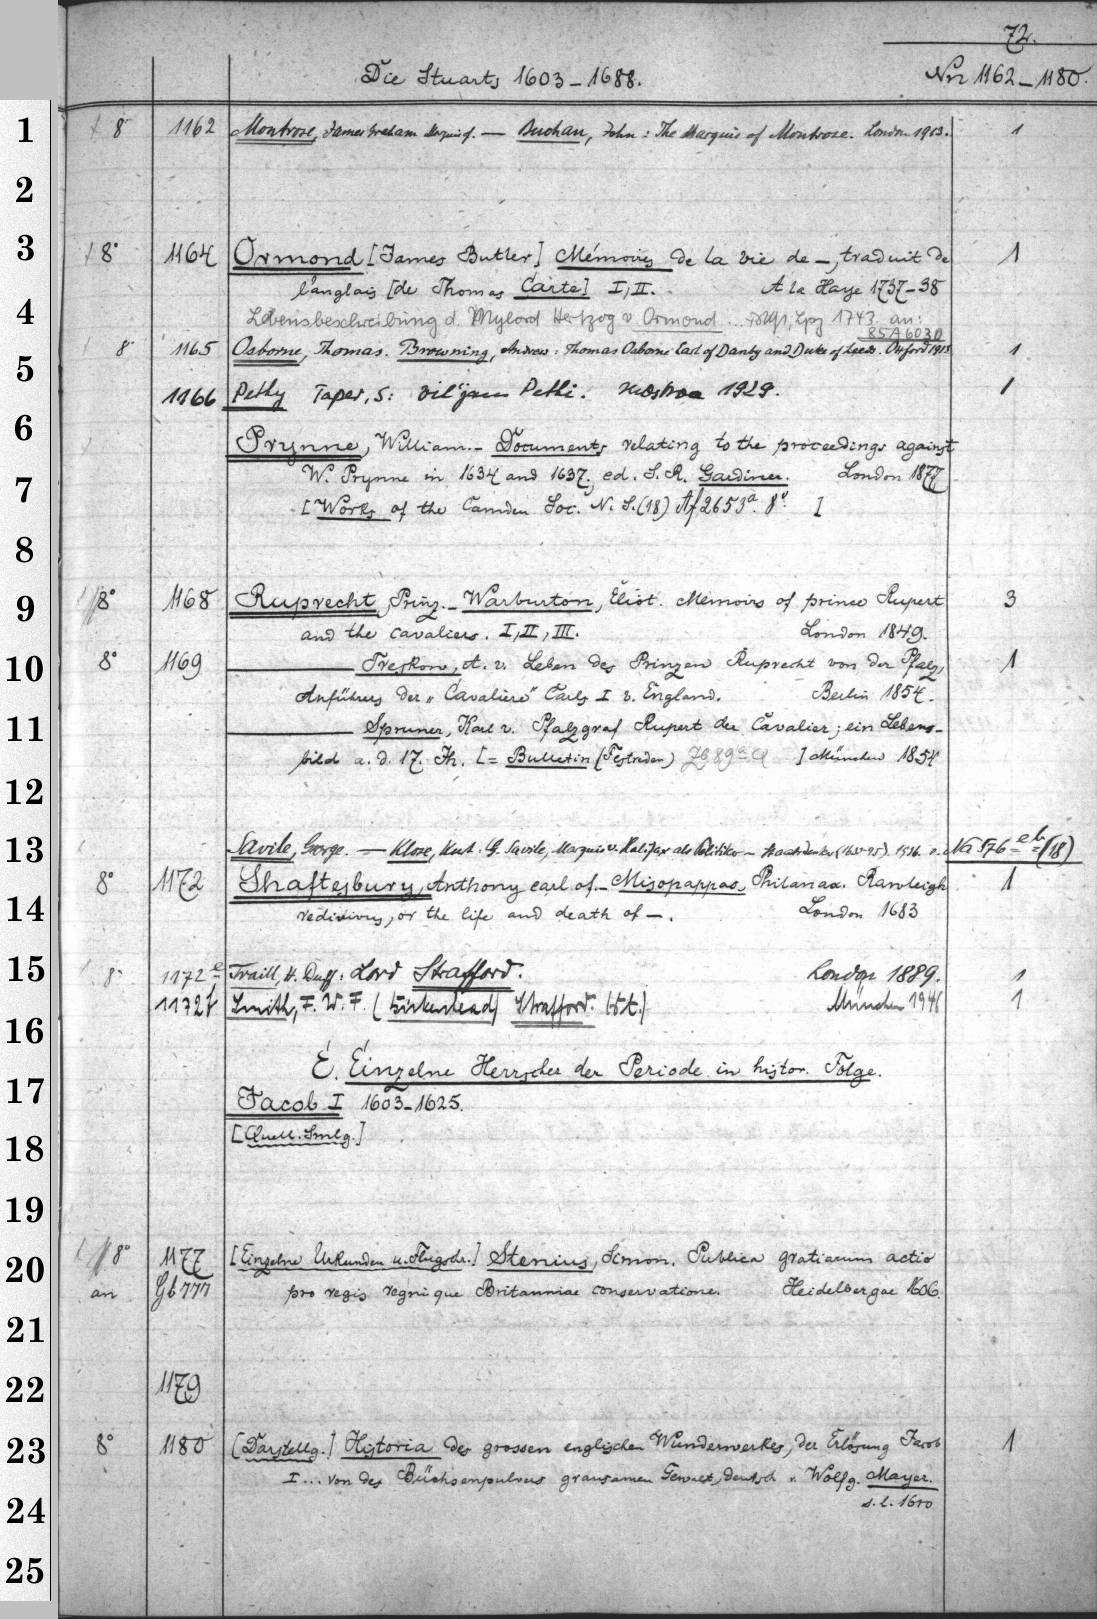 72.
Die Stuarts 1603-1688. Nrr 1162-1180.
1 8° 1162 Montrose, James Graham Marquis of. — Buchan, John: The Marquis of Montrose. London 1913. 1
2
3 8° 1164 Ormond [James Butler] Mémoires de la vie de —, traduit de 1
l'anglais [de Thomas Carte] I, II. A la Haye 1737-38
4 Lebensbeschreibung d. Mylord Hertzog v Ormond ... Lpz 1743. an:
85A6030
8° 1165 Osborne, Thomas. Browning, Andrew: Thomas Osborne Earl of Danby and Duke of Leeds. Oxford 1913 1
5
1166 Pethy Taper, S: Vil'jam Pethi. Moskva 1929. 1
6 Prynne, William.- Documents relating to the proceedings against
7 W. Prynne in 1634 and 1637, ed. S. R. Gardiner. London 1877
[Works of the Camden Soc. N. S. (18) Af 2653a. 8° ]
8
9 8° 1168 Ruprecht, Prinz.- Warburton, Eliot. Memoirs of prince Rupert 3
and the cavaliers. I, II, III. London 1849.
10 8° 1169 — Treskow, A. v. Leben des Prinzen Ruprecht von der Pfalz, 1
Anführers der „Cavaliere" Carls I v. England. Berlin 1854.
11 — Spruner, Karl v. Pfalzgraf Rupert der Cavalier; ein Lebens-
bild a. d. 17. Jh. [= Bulletin (Festreden) Zb 89a ] München 1854
12
13 Savile, George. — Klose, Kurt: G. Savile, Marquis v. Halifax als Politiker u. Staatsdenker (1633-95). 1936. Na 576 (18)
14 8° 1172 Shaftesbury, Anthony earl of.- Misopappas, Philanax. Rawleigh 1
redivivus, or the life and death of —. London 1683
15 8° 1172e Traill, H. Duff: Lord Strafford. London 1889. 1
1172f Smith, F. W. F. (Birkenhead) Strafford. München 1
16
E. Einzelne Herrscher der Periode in histor. Folge.
17 Jacob I 1603-1625.
18 [Quell. Smlg.]
19
20 8° 1177 [Einzelne Urkunden u. Flugschr.] Stenius, Simon. Publica gratiarum actio
an Gb 777 pro regis regnique Britanniae conservatione. Heidelbergae 1606.
21
22 1179
23 8° 1180 [Darstellg.] Historia des grossen englischen Wunderwerkes, der Erlösung Jacob 1
I ... von des Büchsenpulvers grausamen Gewalt, deutsch v. Wolfg. Mayer.
24 s. l. 1610
25